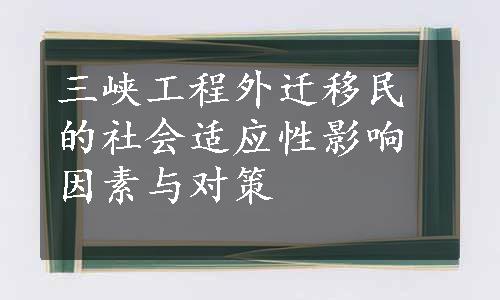 三峡工程外迁移民
的社会适应性影响
因素与对策